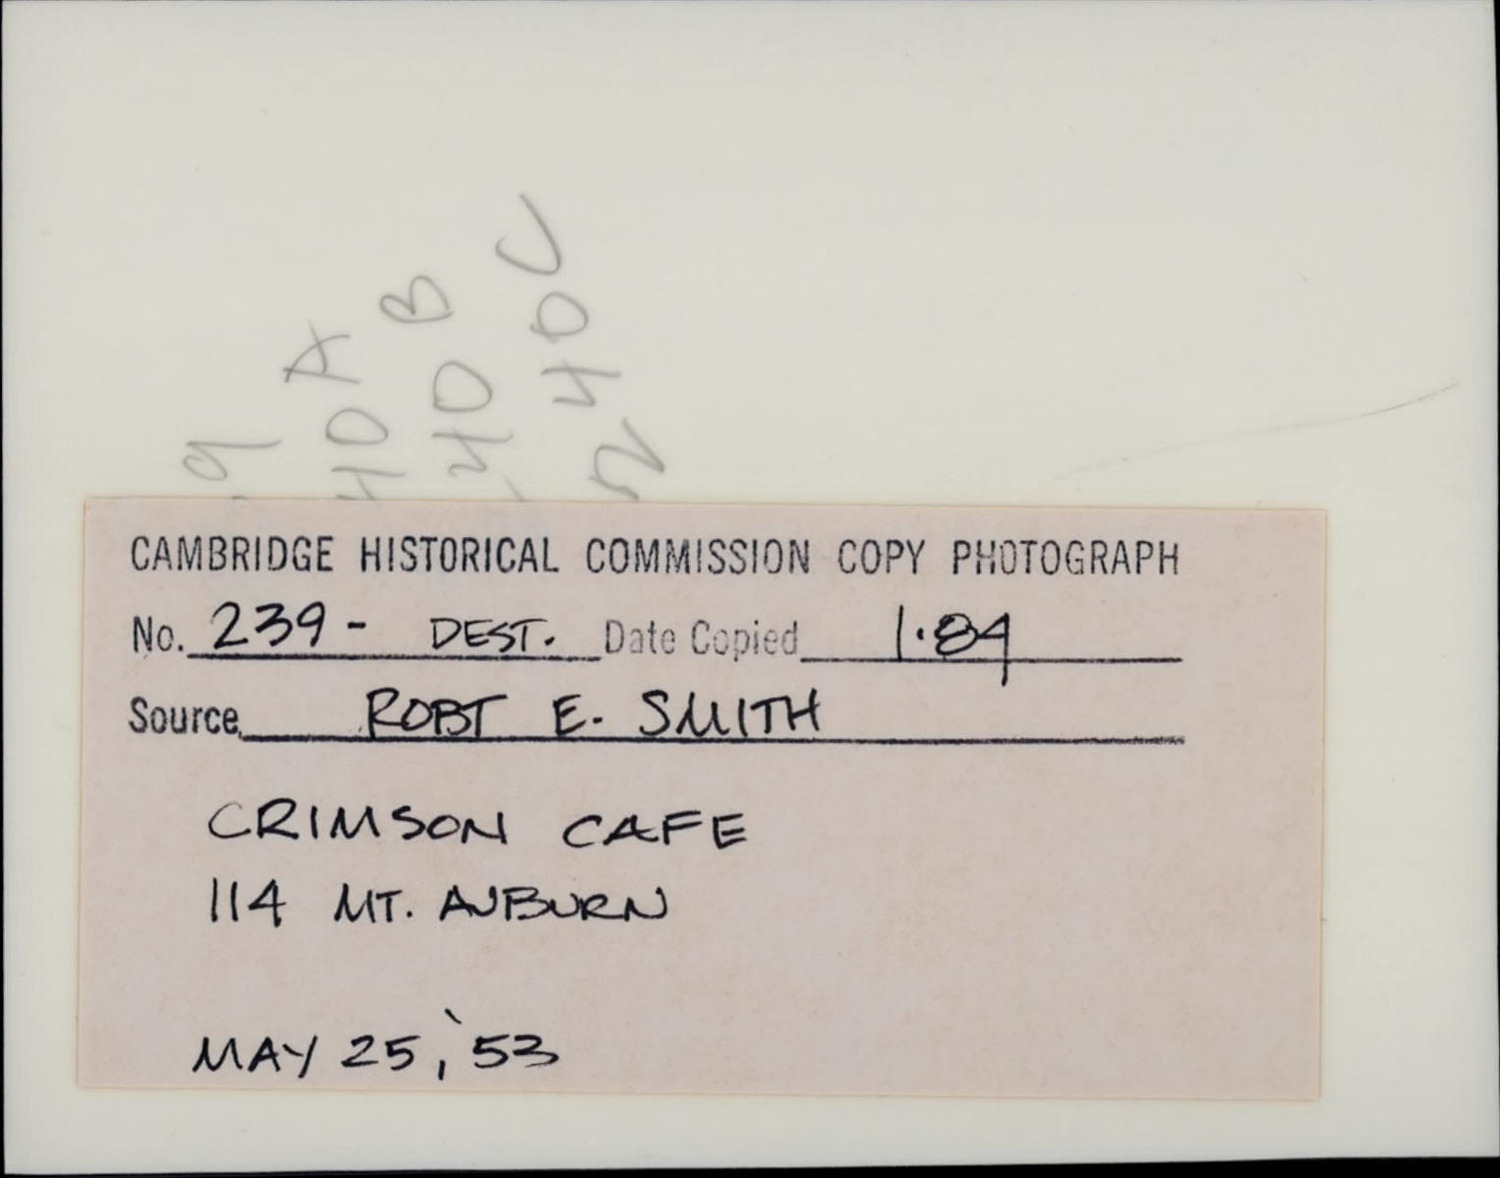 CAMBRIDGE HISTORICAL COMMISSION COPY PHOTOGRAPH
No. 239 - DEST. Date Copied 1.84
Source ROBT E. SMITH
CRIMSON CAFE
114 MT. AUBURN
MAY 25, '53
9
40 A
40 B
2 40 C